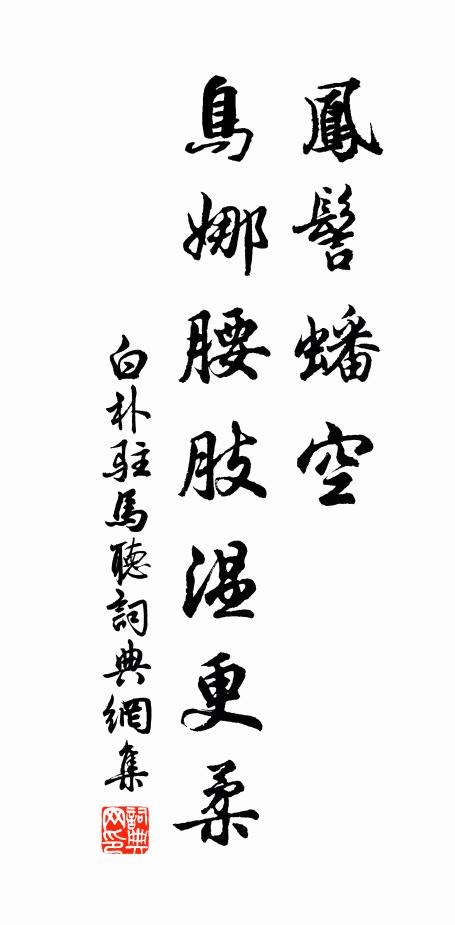 鳳髻蟠空
鳥娜腰肢温更柔
白朴駐馬聽詞典網集
詞典
网印